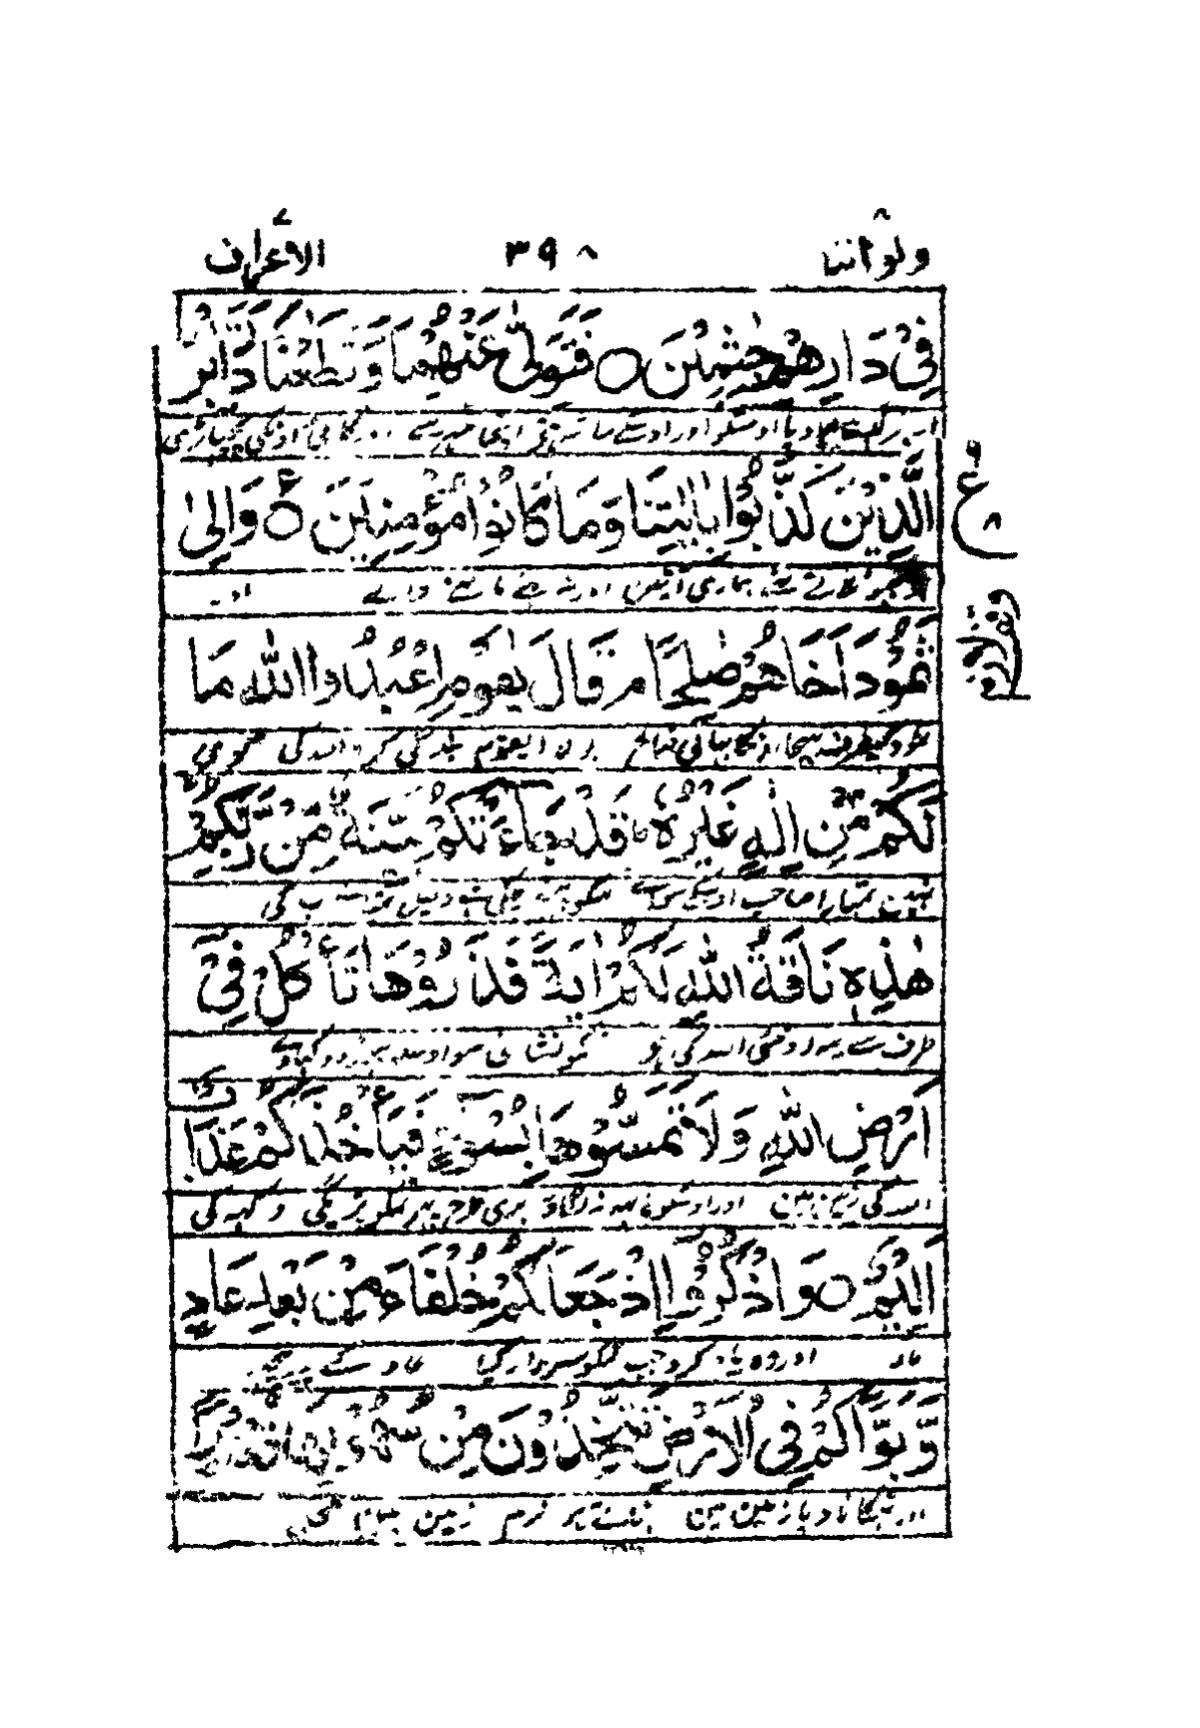 ولو اننا ٨ ٣٩٨ الاعراف ٧
فِیْ دَارِهِمْ جٰثِمِیْنَ ○ فَتَوَلّٰی عَنْهُمْ وَقَطَعْنَا دَابِرَ
اور اوسکے ساتھ اپنی مہر سے اور
الَّذِیْنَ کَذَّبُوْا بِاٰیٰتِنَا وَمَا کَانُوْا مُؤْمِنِیْنَ ○ وَاِلٰی
ع ٨
جھٹلاتے تھے ہماری آیتیں اور نہ تھے ماننے والے اور
ثَمُوْدَ اَخَاهُمْ صٰلِحًا م قَالَ یٰقَوْمِ اعْبُدُوا اللّٰهَ مَا
ثمود کیطرف بھیجا اونکا بھائی صالح بولا ای قوم بندگی کرو اللہ کی کوئی
لَکُمْ مِّنْ اِلٰهٍ غَیْرُهٗ ط قَدْ جَآءَتْکُمْ بَیِّنَةٌ مِّنْ رَّبِّکُمْ ط
نہین تمہارا صاحب اوسکے سوائے تمکو پہنچ چکی ہے دلیل تمہارے رب کی
هٰذِهٖ نَاقَةُ اللّٰهِ لَکُمْ اٰیَةً فَذَرُوْهَا تَاْکُلْ فِیْٓ
طرف سے یہ اونٹنی اللہ کی ہے تمکو نشانی سو اوسکو چھوڑ دو کھاوے
اَرْضِ اللّٰهِ وَلَا تَمَسُّوْهَا بِسُوْٓءٍ فَیَاْخُذَکُمْ عَذَابٌ
اللہ کی زمین مین اور اوسکو ہاتھ نہ لگاؤ بری طرح پھر تمکو پکڑیگی دکھ کی
اَلِیْمٌ ○ وَاذْکُرُوْٓا اِذْ جَعَلَکُمْ خُلَفَآءَ مِنْ بَعْدِ عَادٍ
مار اور وہ یاد کرو جب تمکو سردار کیا عاد کے پیچھے
وَّ بَوَّاَکُمْ فِی الْاَرْضِ تَتَّخِذُوْنَ مِنْ سُهُوْلِهَا قُصُوْرًا
اور ٹھکانا دیا زمین مین بناتے ہو نرم زمین مین محل